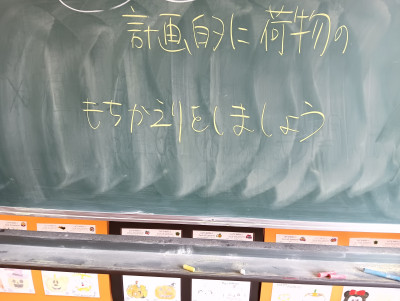 計画的に荷物の
もちかえりをしましょう